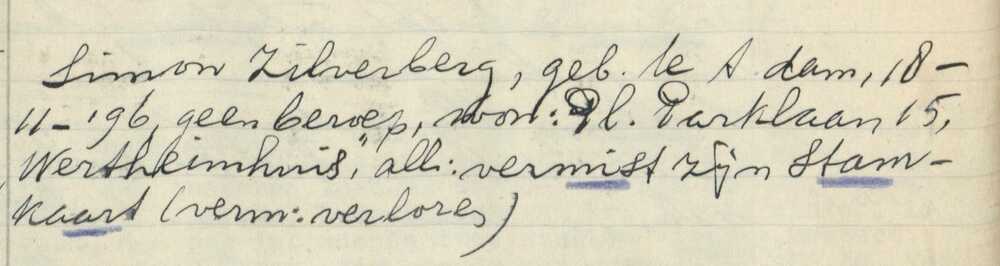 Simon Zilverberg, geb. te A dam, 18-
11-'96, geen beroep, won: Pl. Parklaan 15,
Wertheimhuis", all: vermist zijn Stam-
kaart (verm: verloren)